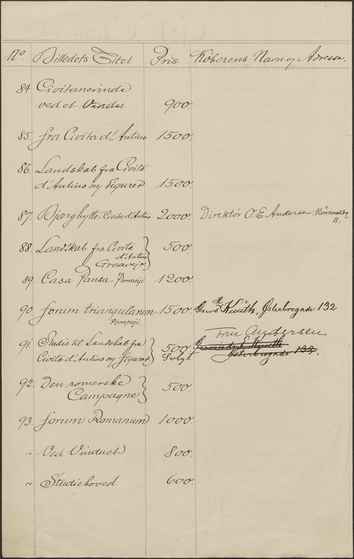 No Billedets Titel Pris Køberens Navn og Adresse.
84 Civitanerinde
ved et Vindue 900
85. fra Civita d'Antino 1500.
86. Landskab fra Civita
d'Antino og Figurer 1500.
87. Bjerghytte, Civita d'Antino 2000. Direktør O. E. Andersen
88. Landskab fra Civita
d'Antino 500
89. Casa Pansa. Pompeji 1200
90 forum triangulanum 1500. Østerbrogade 132
Pompeji
Fru
91. Studie til Landskab fra 500
Civita d'Antino og Figurer Solgt Østerbrogade 132.
92. Den romerske
Campagne 500
93 forum Romanum 1000
" Ved Vinduet 800
" Studiehoved 600